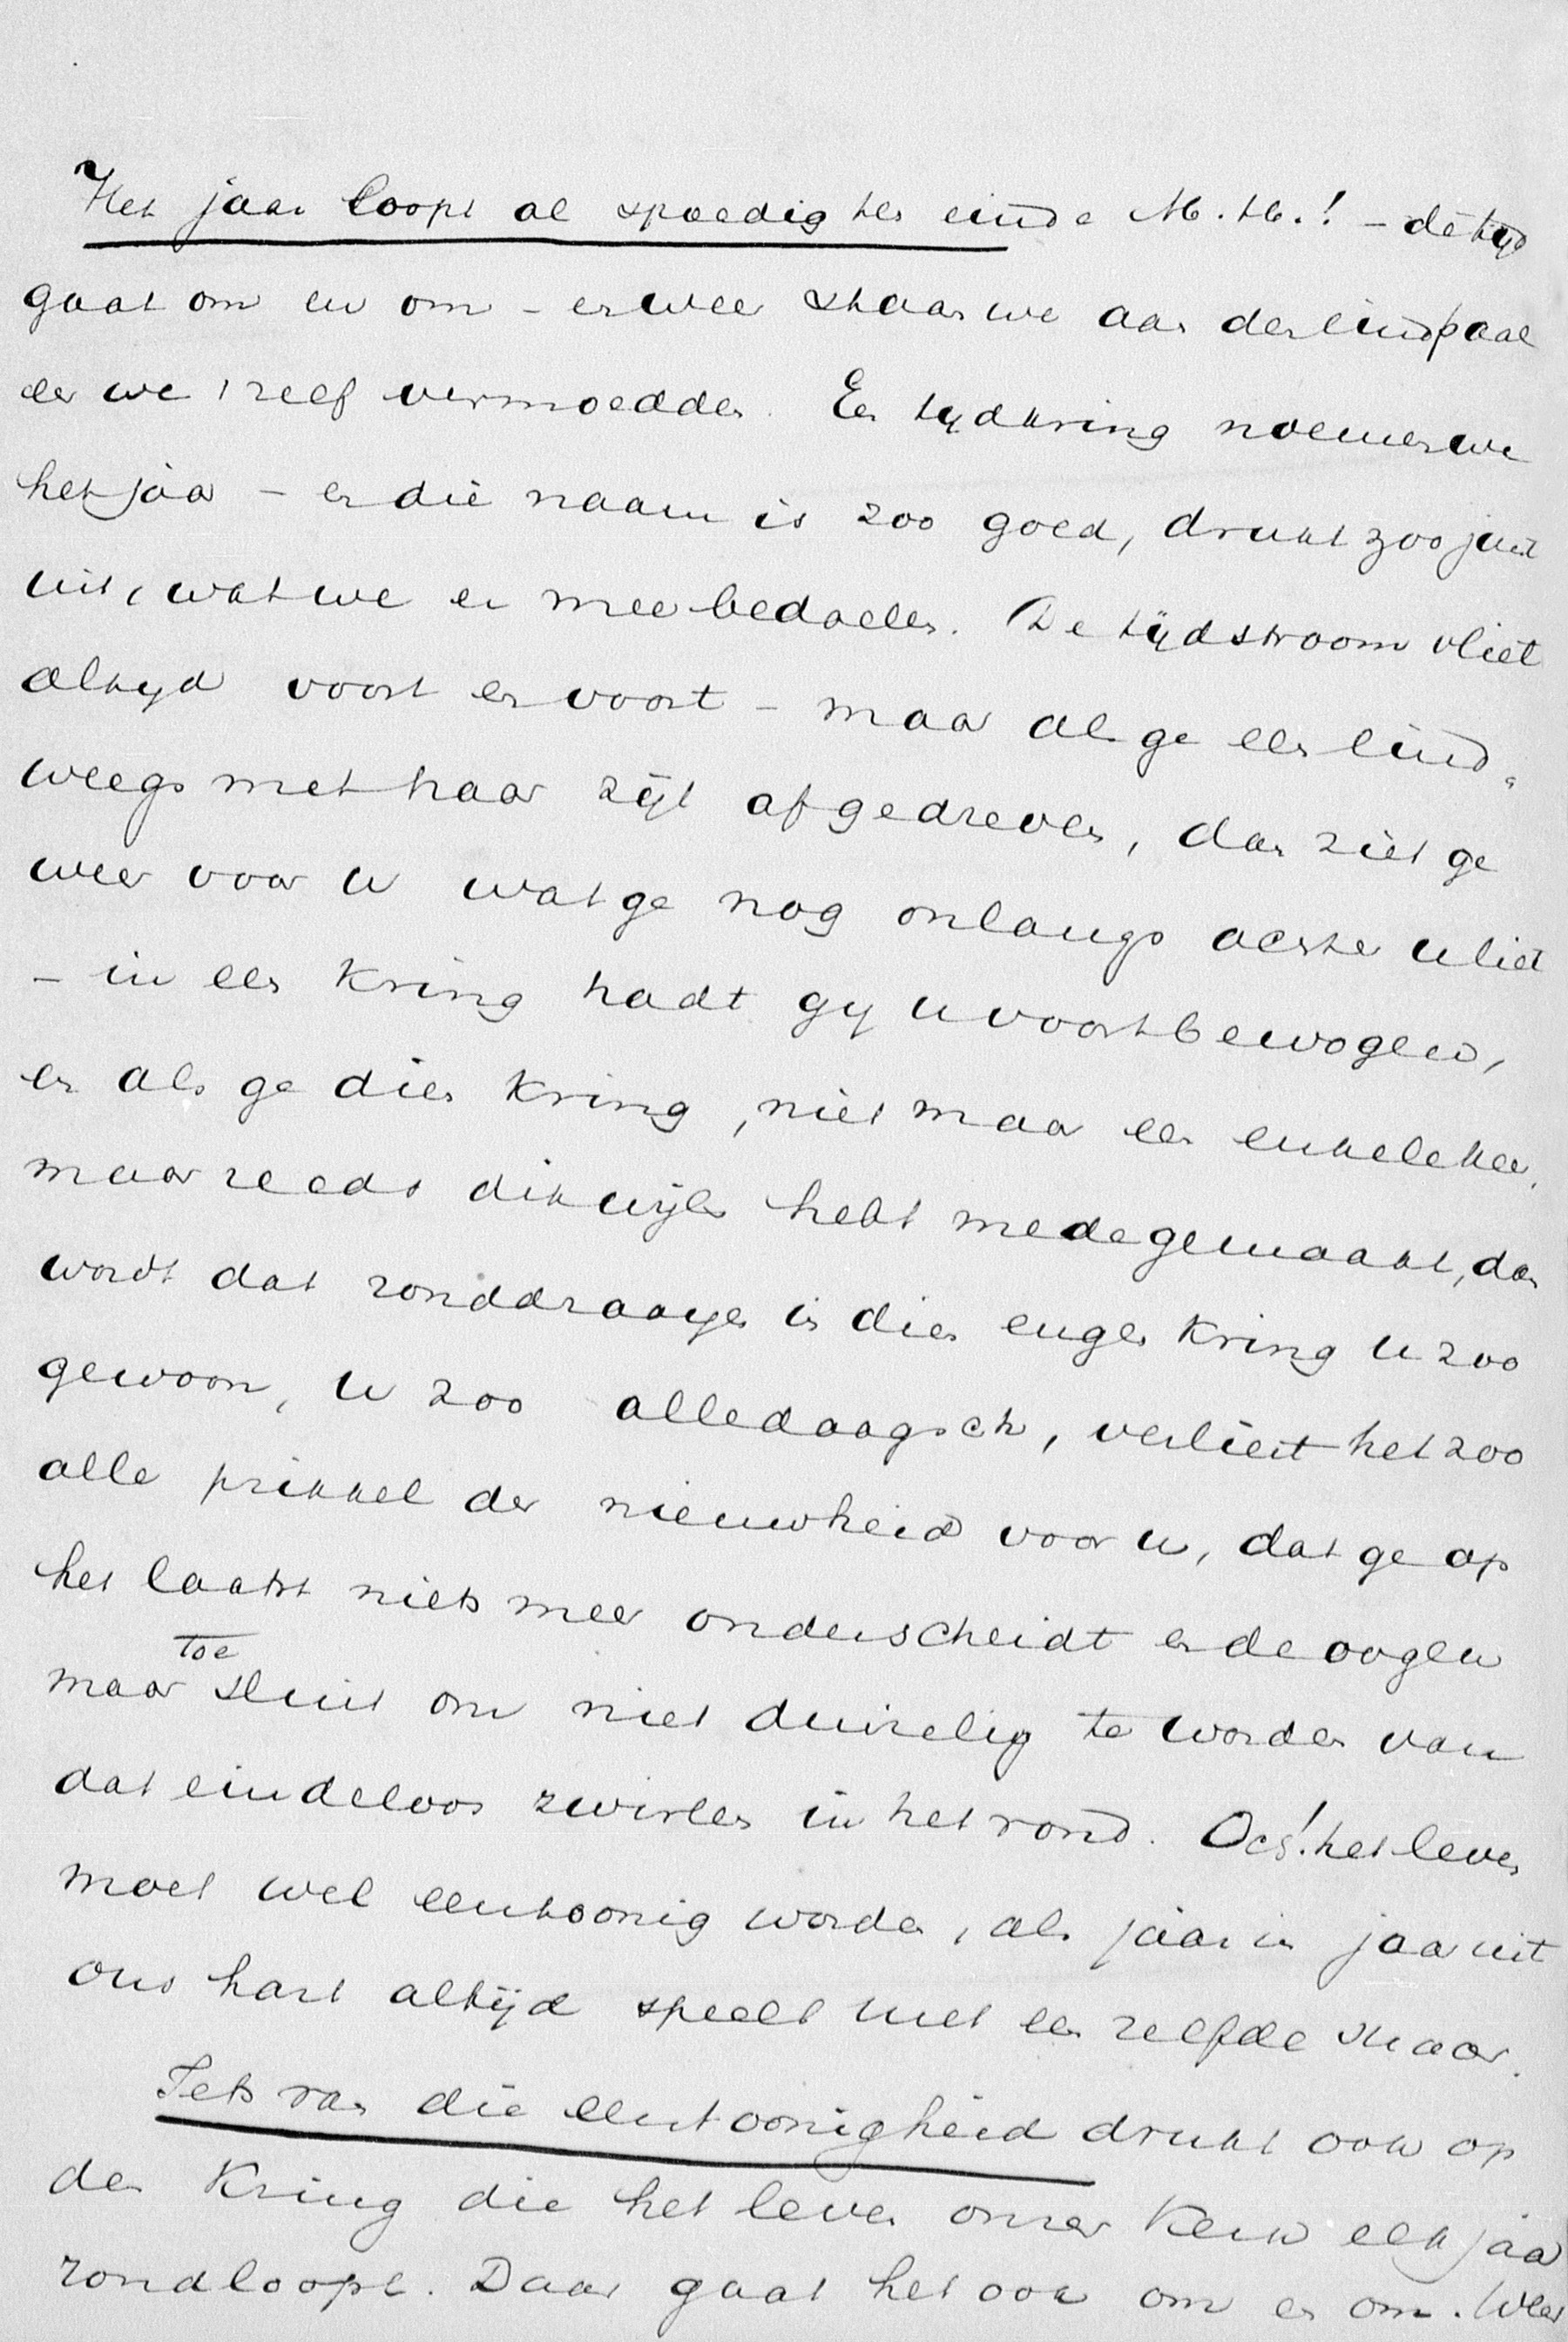 Het jaar loopt al spoedig ten einde M. H.! - de tijd
gaat om en om - en weer staan we aan den eindpaal
eer we 't zelf vermoedden. Een tijdkring noemen we
het jaar - en die naam is zoo goed, drukt zoo juist
uit, wat we er mee bedoelen. De tijdstroom vliet
altijd voort en voort - maar als ge een eind-
weegs met haar zijt afgedreven, dan ziet ge
weer voor u wat ge nog onlangs achter u liet
- in een kring hadt gij u voortbewogen,
en als ge dien kring, niet maar een enkele keer,
maar reeds dikwijls hebt medegemaakt, dan
wordt dat ronddraaijen in dien engen kring u zoo
gewoon, u zoo alledaagsch, verliest het zoo
alle prikkel der nieuwheid voor u, dat ge op
het laatst niets meer onderscheidt en de oogen
toe
maar sluit om niet duizelig te worden van
dat eindeloos zwirlen in het rond. Och! het leven
moet wel eentoonig worden, als jaar in jaar uit
ons hart altijd speelt met een zelfde snaar.
Iets van die eentoonigheid drukt ook op
den kring die het leven onzer Kerk elk jaar
rondloopt. Daar gaat het ook om en om. Weer